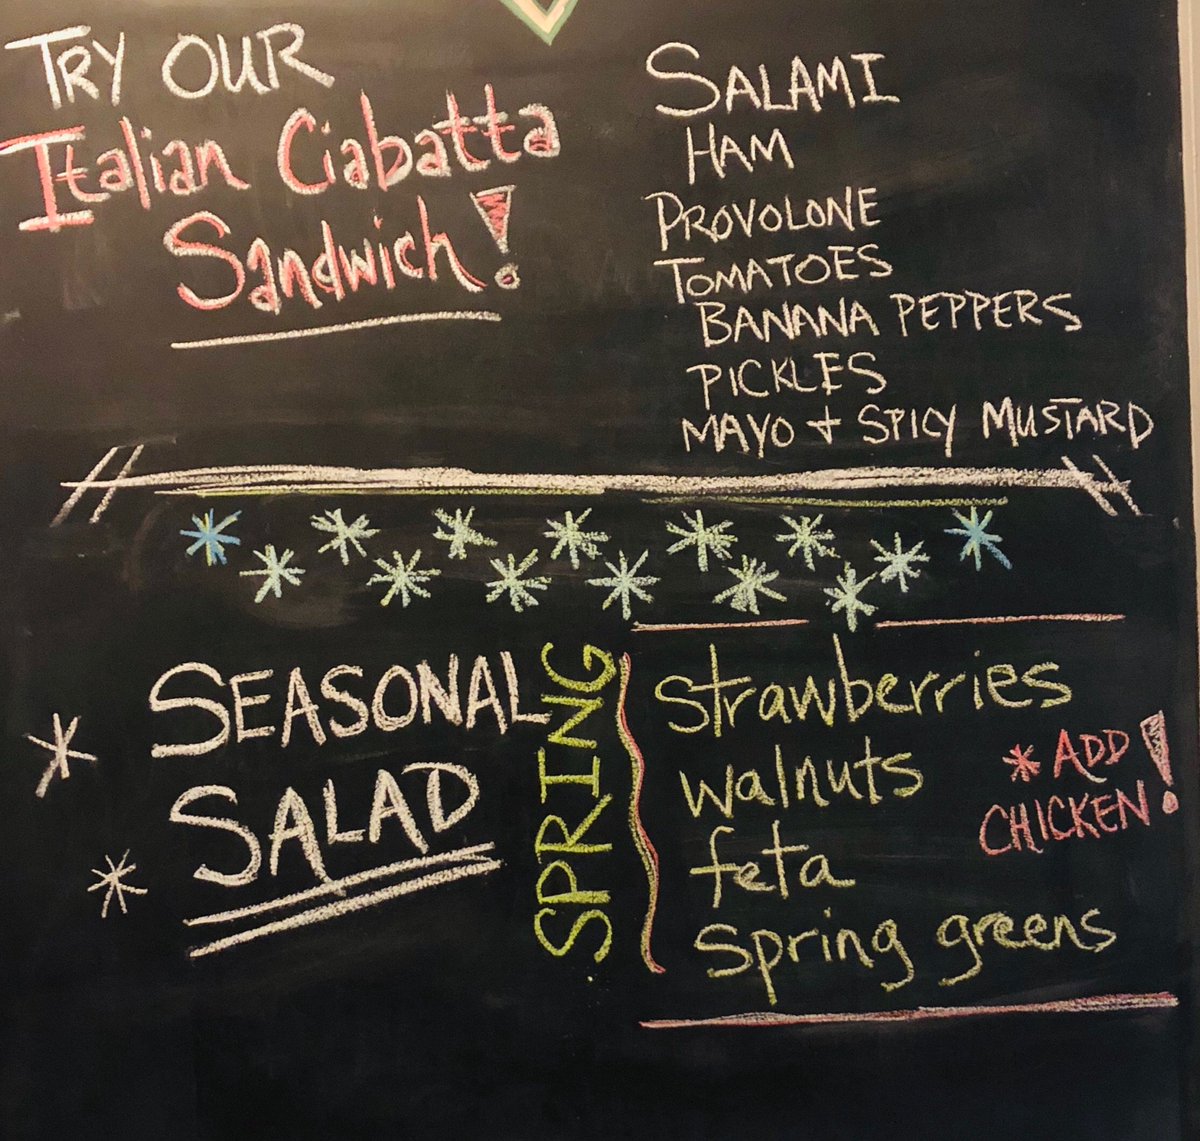 TRY OUR
Italian Ciabatta
Sandwich!
SALAMI
HAM
PROVOLONE
TOMATOES
BANANA PEPPERS
PICKLES
MAYO + SPICY MUSTARD
* SEASONAL
* SALAD
SPRING
Strawberries
walnuts
feta
Spring greens
* ADD
CHICKEN!